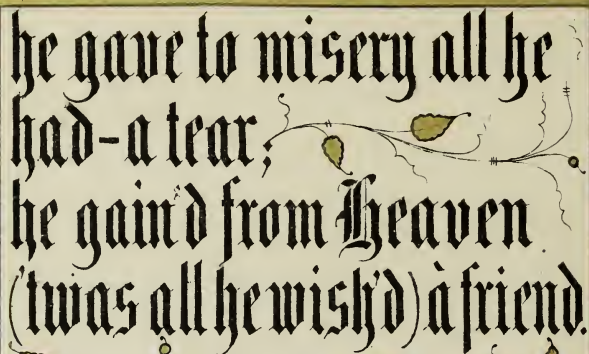 he gave to misery all he
had-a tear;
he gain'd from Heaven
('twas all he wish'd) à friend.